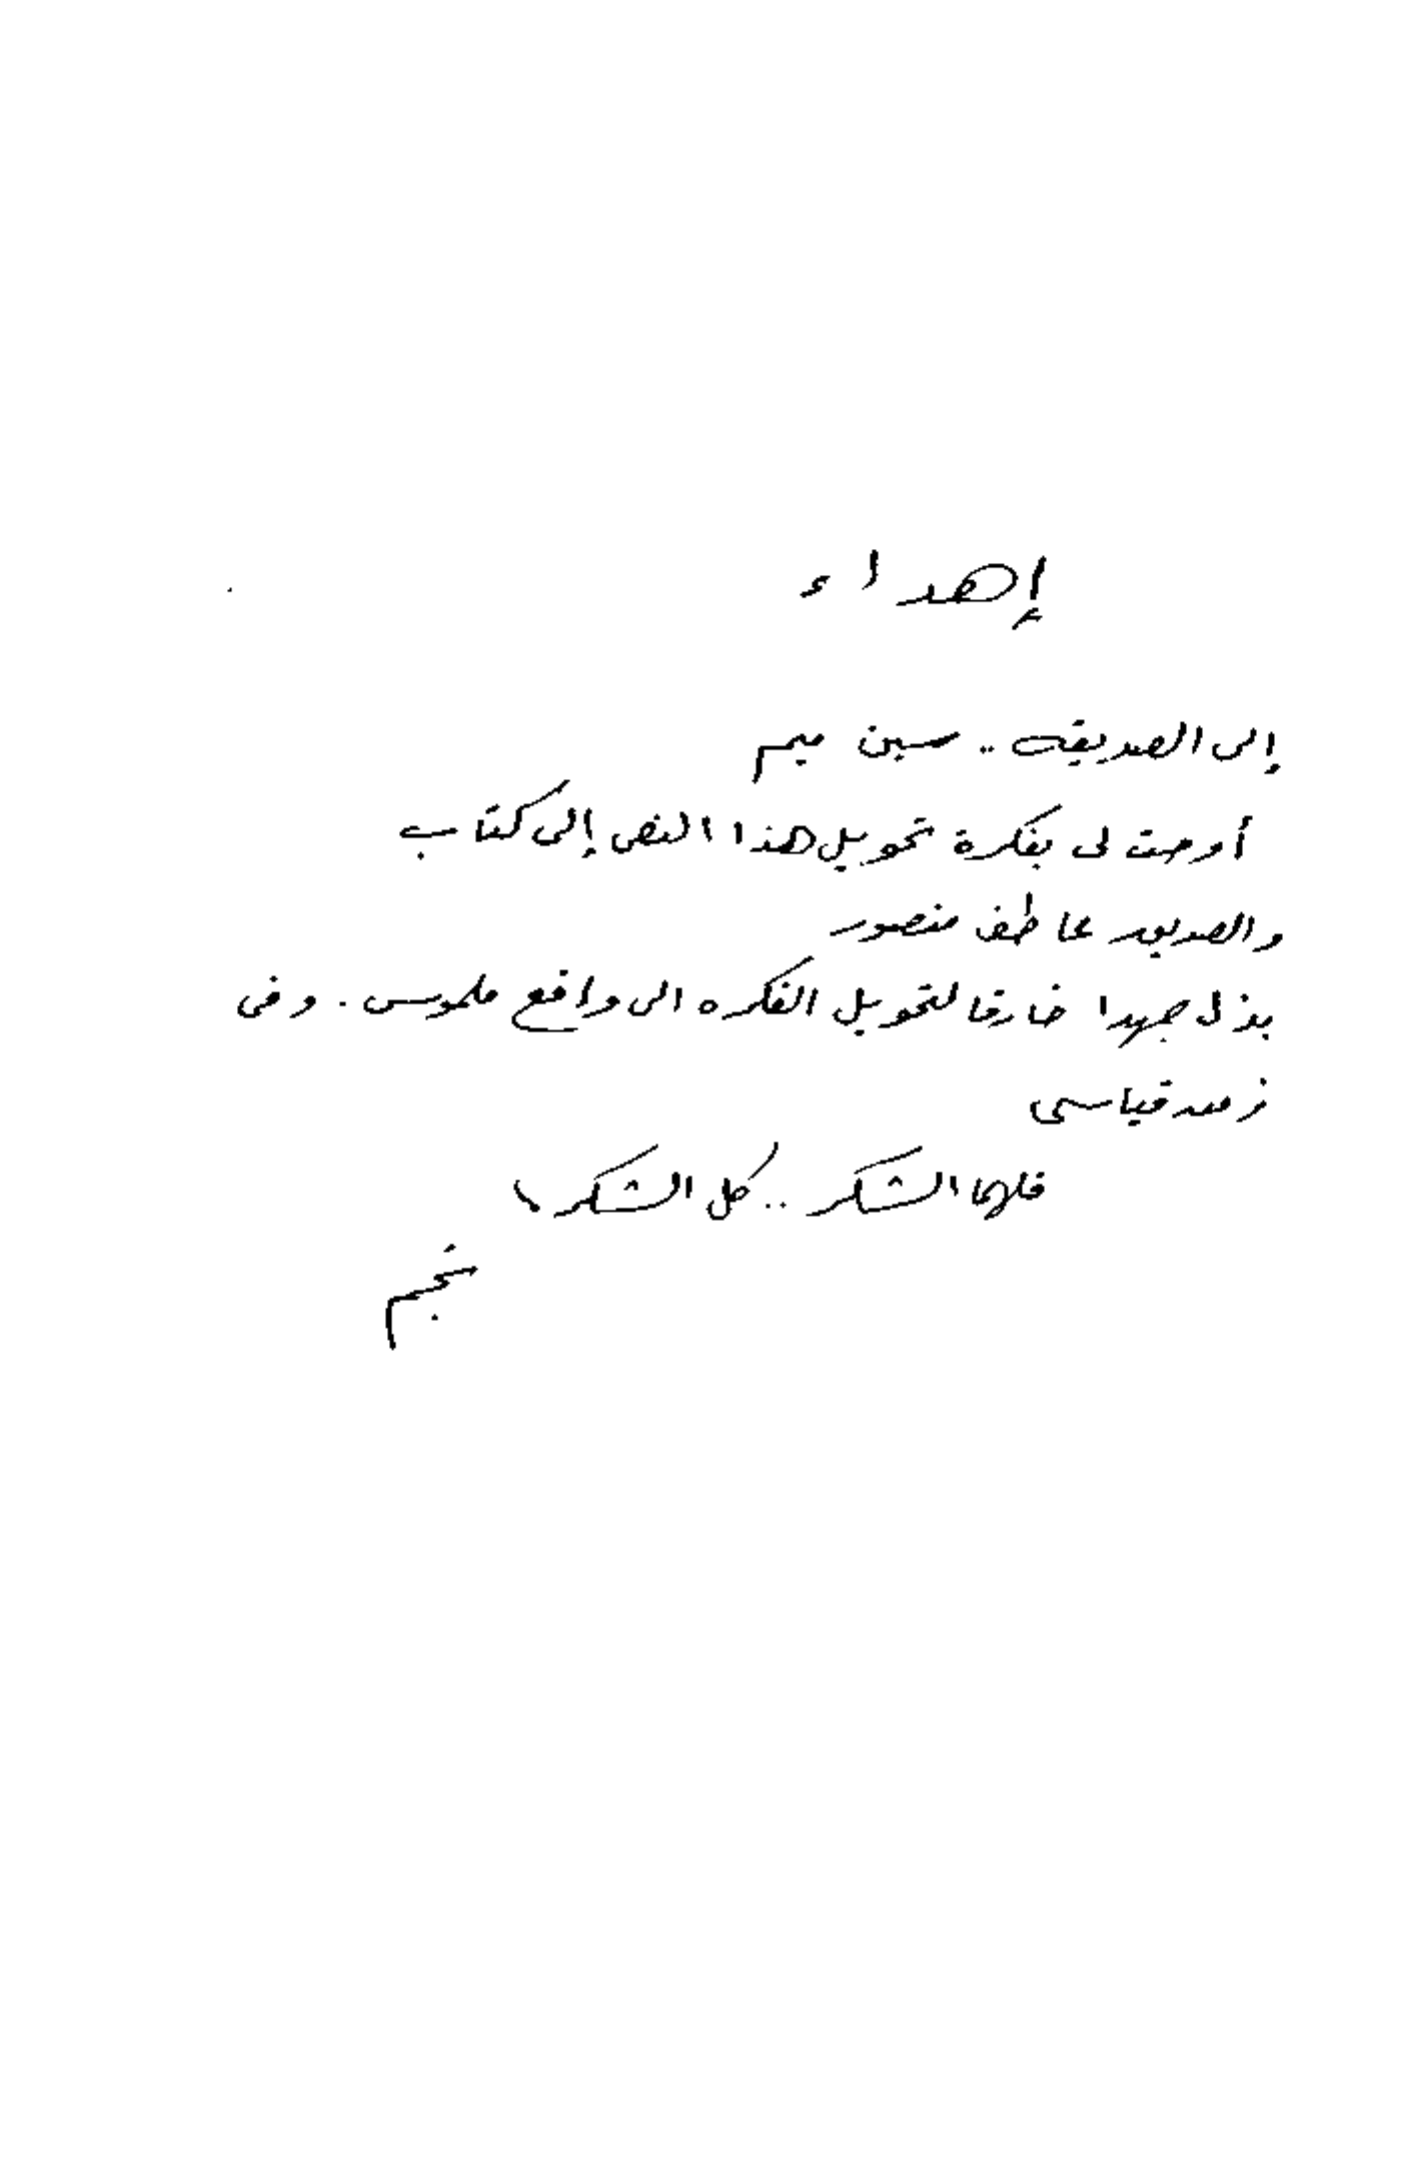 إهداء
إلى الصديقه .. سين ميم
أوحت لى بفكرة تحويل هذا النص إلى كتاب
والصديق عاطف منصور
بذل جهدا خارقا لتحويل الفكره الى واقع ملموس . وفى
زمن قياسى
فلهما الشكر .. كل الشكر ،
نجم